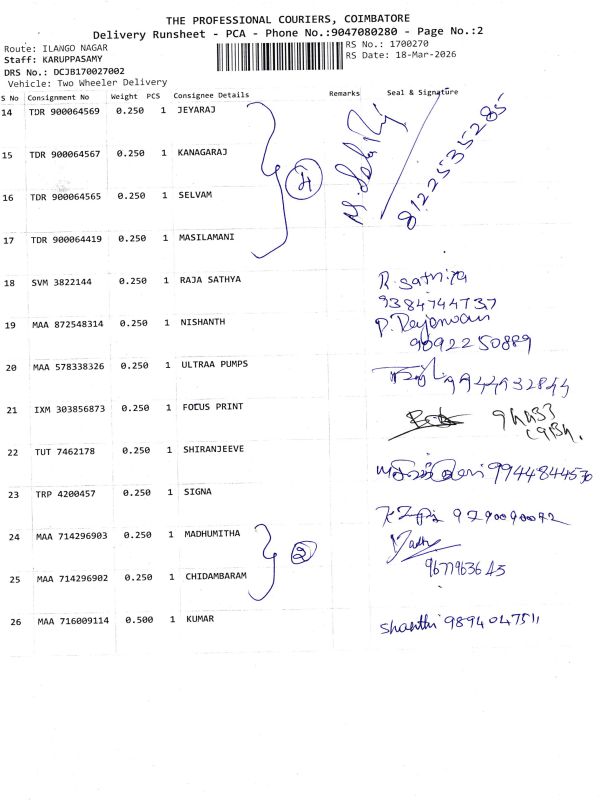 THE PROFESSIONAL COURIERS, COIMBATORE
Delivery Runsheet - PCA - Phone No.:9047080280 - Page No.:2
Route: ILANGO NAGAR
Staff: KARUPPASAMY
DRS No.: DCJB170027002
Vehicle: Two Wheeler Delivery
RS No.: 1700270
RS Date: 18-Mar-2026
S No Consignment No Weight PCS Consignee Details Remarks Seal & Signature
14 TDR 900064569 0.250 1 JEYARAJ
15 TDR 900064567 0.250 1 KANAGARAJ
16 TDR 900064565 0.250 1 SELVAM
17 TDR 900064419 0.250 1 MASILAMANI
4
8122535285
18 SVM 3822144 0.250 1 RAJA SATHYA R. sathiya
9384744737
19 MAA 872548314 0.250 1 NISHANTH
9092250889
20 MAA 578338326 0.250 1 ULTRAA PUMPS
21 IXM 303856873 0.250 1 FOCUS PRINT
22 TUT 7462178 0.250 1 SHIRANJEEVE
9944844570
23 TRP 4200457 0.250 1 SIGNA
24 MAA 714296903 0.250 1 MADHUMITHA
25 MAA 714296902 0.250 1 CHIDAMBARAM
2
26 MAA 716009114 0.500 1 KUMAR shanthi 9894047511